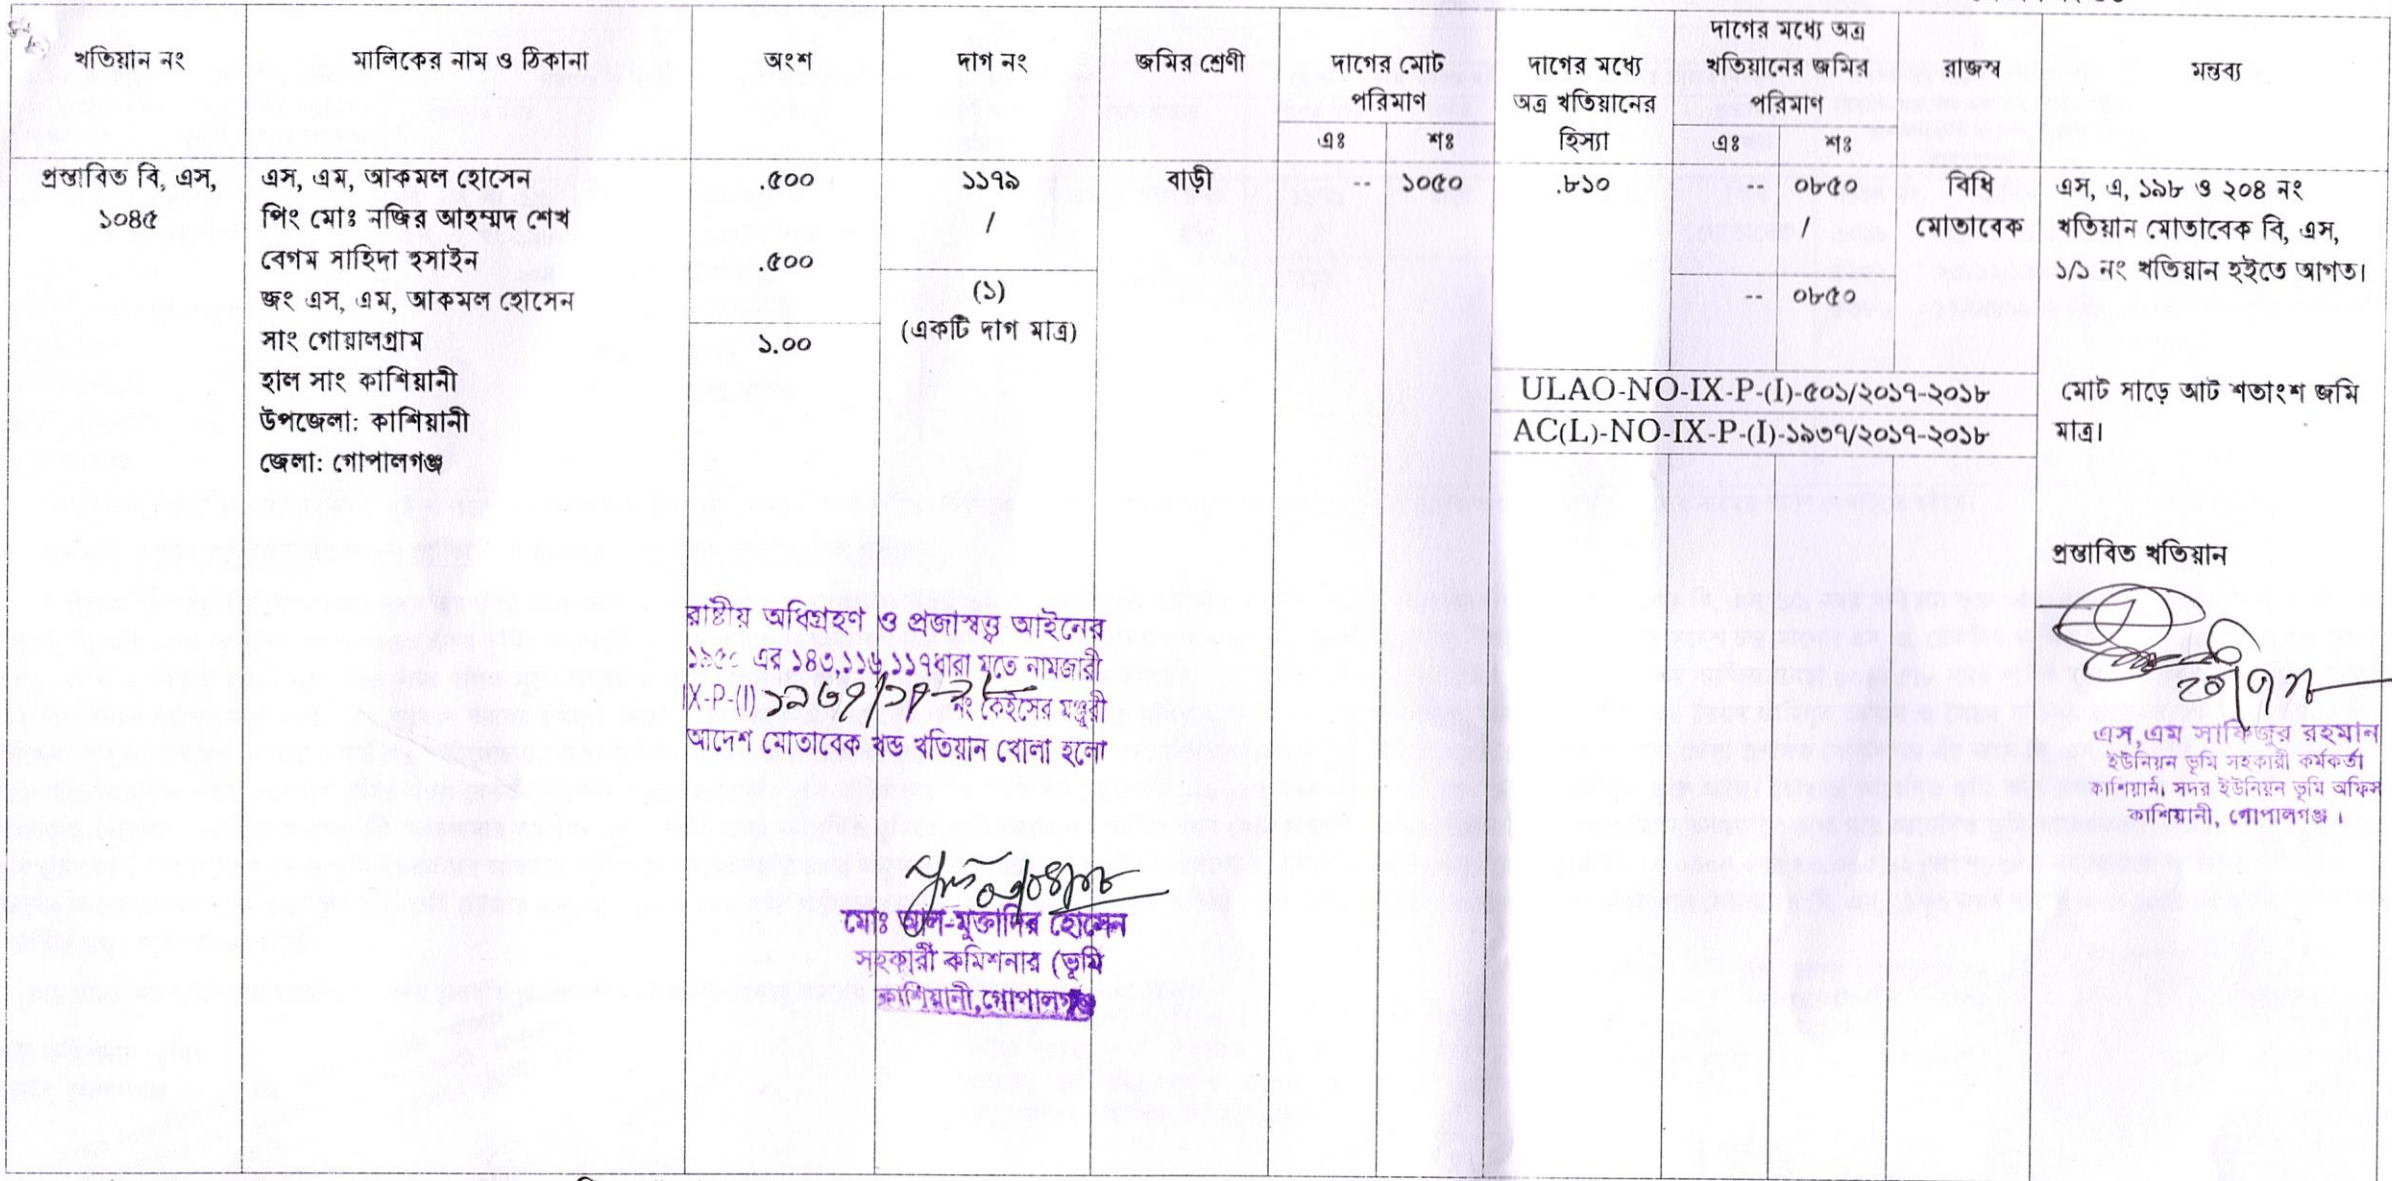 খতিয়ান নং
মালিকের নাম ও ঠিকানা
অংশ
দাগ নং
জমির শ্রেণী
দাগের মোট
পরিমাণ
এঃ শঃ
দাগের মধ্যে
অত্র খতিয়ানের
হিস্যা
দাগের মধ্যে অত্র
খতিয়ানের জমির
পরিমাণ
এঃ শঃ
রাজস্ব
মন্তব্য
প্রস্তাবিত বি, এস,
১০৪৫
এস, এম, আকমল হোসেন
পিং মোঃ নজির আহম্মদ শেখ
বেগম সাহিদা হুসাইন
জং এস, এম, আকমল হোসেন
সাং গোয়ালগ্রাম
হাল সাং কাশিয়ানী
উপজেলা: কাশিয়ানী
জেলা: গোপালগঞ্জ
.৫০০
.৫০০
১.০০
১১৭৯
/
(১)
(একটি দাগ মাত্র)
বাড়ী
-- ১০৫০
.৮১০
-- ০৮৫০
/
-- ০৮৫০
বিধি
মোতাবেক
এস, এ, ১৯৮ ও ২০৪ নং
খতিয়ান মোতাবেক বি, এস,
১/১ নং খতিয়ান হইতে আগত।
ULAO-NO-IX-P-(I)-৫০১/২০১৭-২০১৮
AC(L)-NO-IX-P-(I)-১৯৩৭/২০১৭-২০১৮
মোট সাড়ে আট শতাংশ জমি
মাত্র।
প্রস্তাবিত খতিয়ান
এস,এম সাফিজুর রহমান
ইউনিয়ন ভূমি সহকারী কর্মকর্তা
কাশিয়ানী সদর ইউনিয়ন ভূমি অফিস
কাশিয়ানী, গোপালগঞ্জ।
রাষ্টীয় অধিগ্রহণ ও প্রজাস্বত্ত্ব আইনের
১৯৫০ এর ১৪৩,১১৬,১১৭ধারা মতে নামজারী
IX-P-(I) ১৯৩৭/১৭-১৮ নং কেইসের মঞ্জুরী
আদেশ মোতাবেক খন্ড খতিয়ান খোলা হলো
মোঃ আল-মুক্তাদির হোসেন
সহকারী কমিশনার (ভূমি
কাশিয়ানী,গোপালগঞ্জ